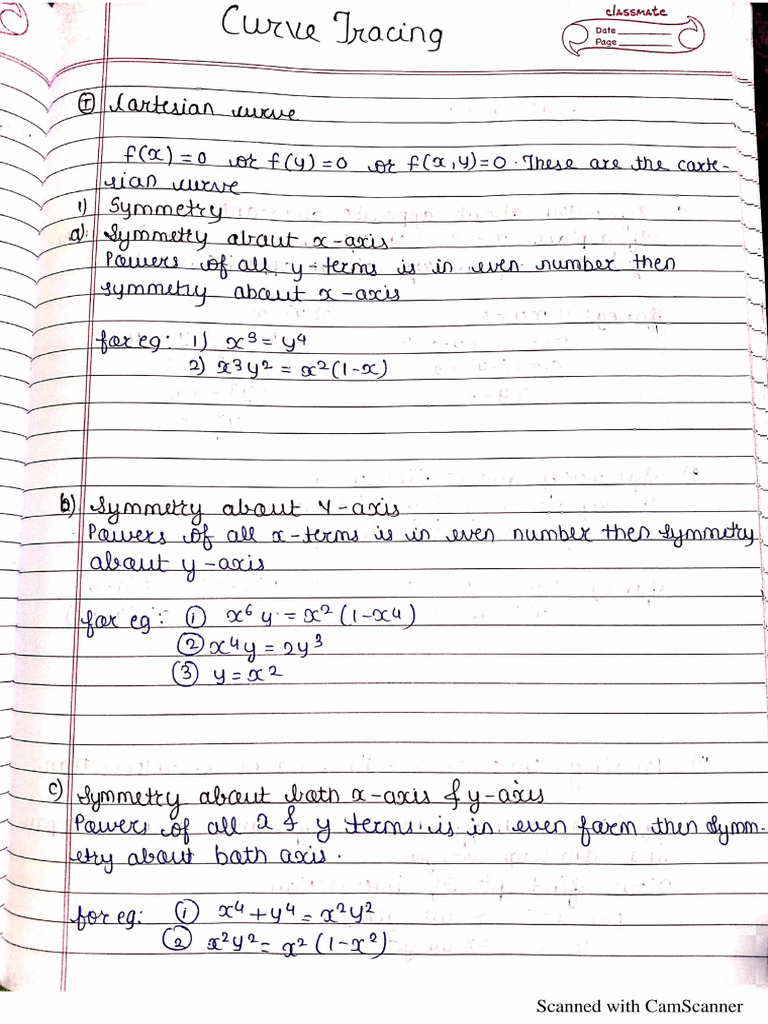 Curve Tracing
classmate
Date
Page
I Cartesian curve
f(x)=0 or f(y)=0 or f(x,y)=0. These are the carte-
sian curve
1) Symmetry
a) Symmetry about x-axis
Powers of all y-terms is in even number then
symmetry about x-axis
for eg: 1) x³ = y⁴
2) x³y² = x²(1-x)
b) Symmetry about Y-axis
Powers of all x-terms is in even number then symmetry
about y-axis
for eg: ① x⁶y = x²(1-x⁴)
② x⁴y = 2y³
③ y = x²
c) Symmetry about both x-axis & y-axis
Powers of all x & y terms is in even form then symm-
etry about both axis.
for eg: ① x⁴+y⁴ = x²y²
② x²y² = x²(1-x²)
Scanned with CamScanner